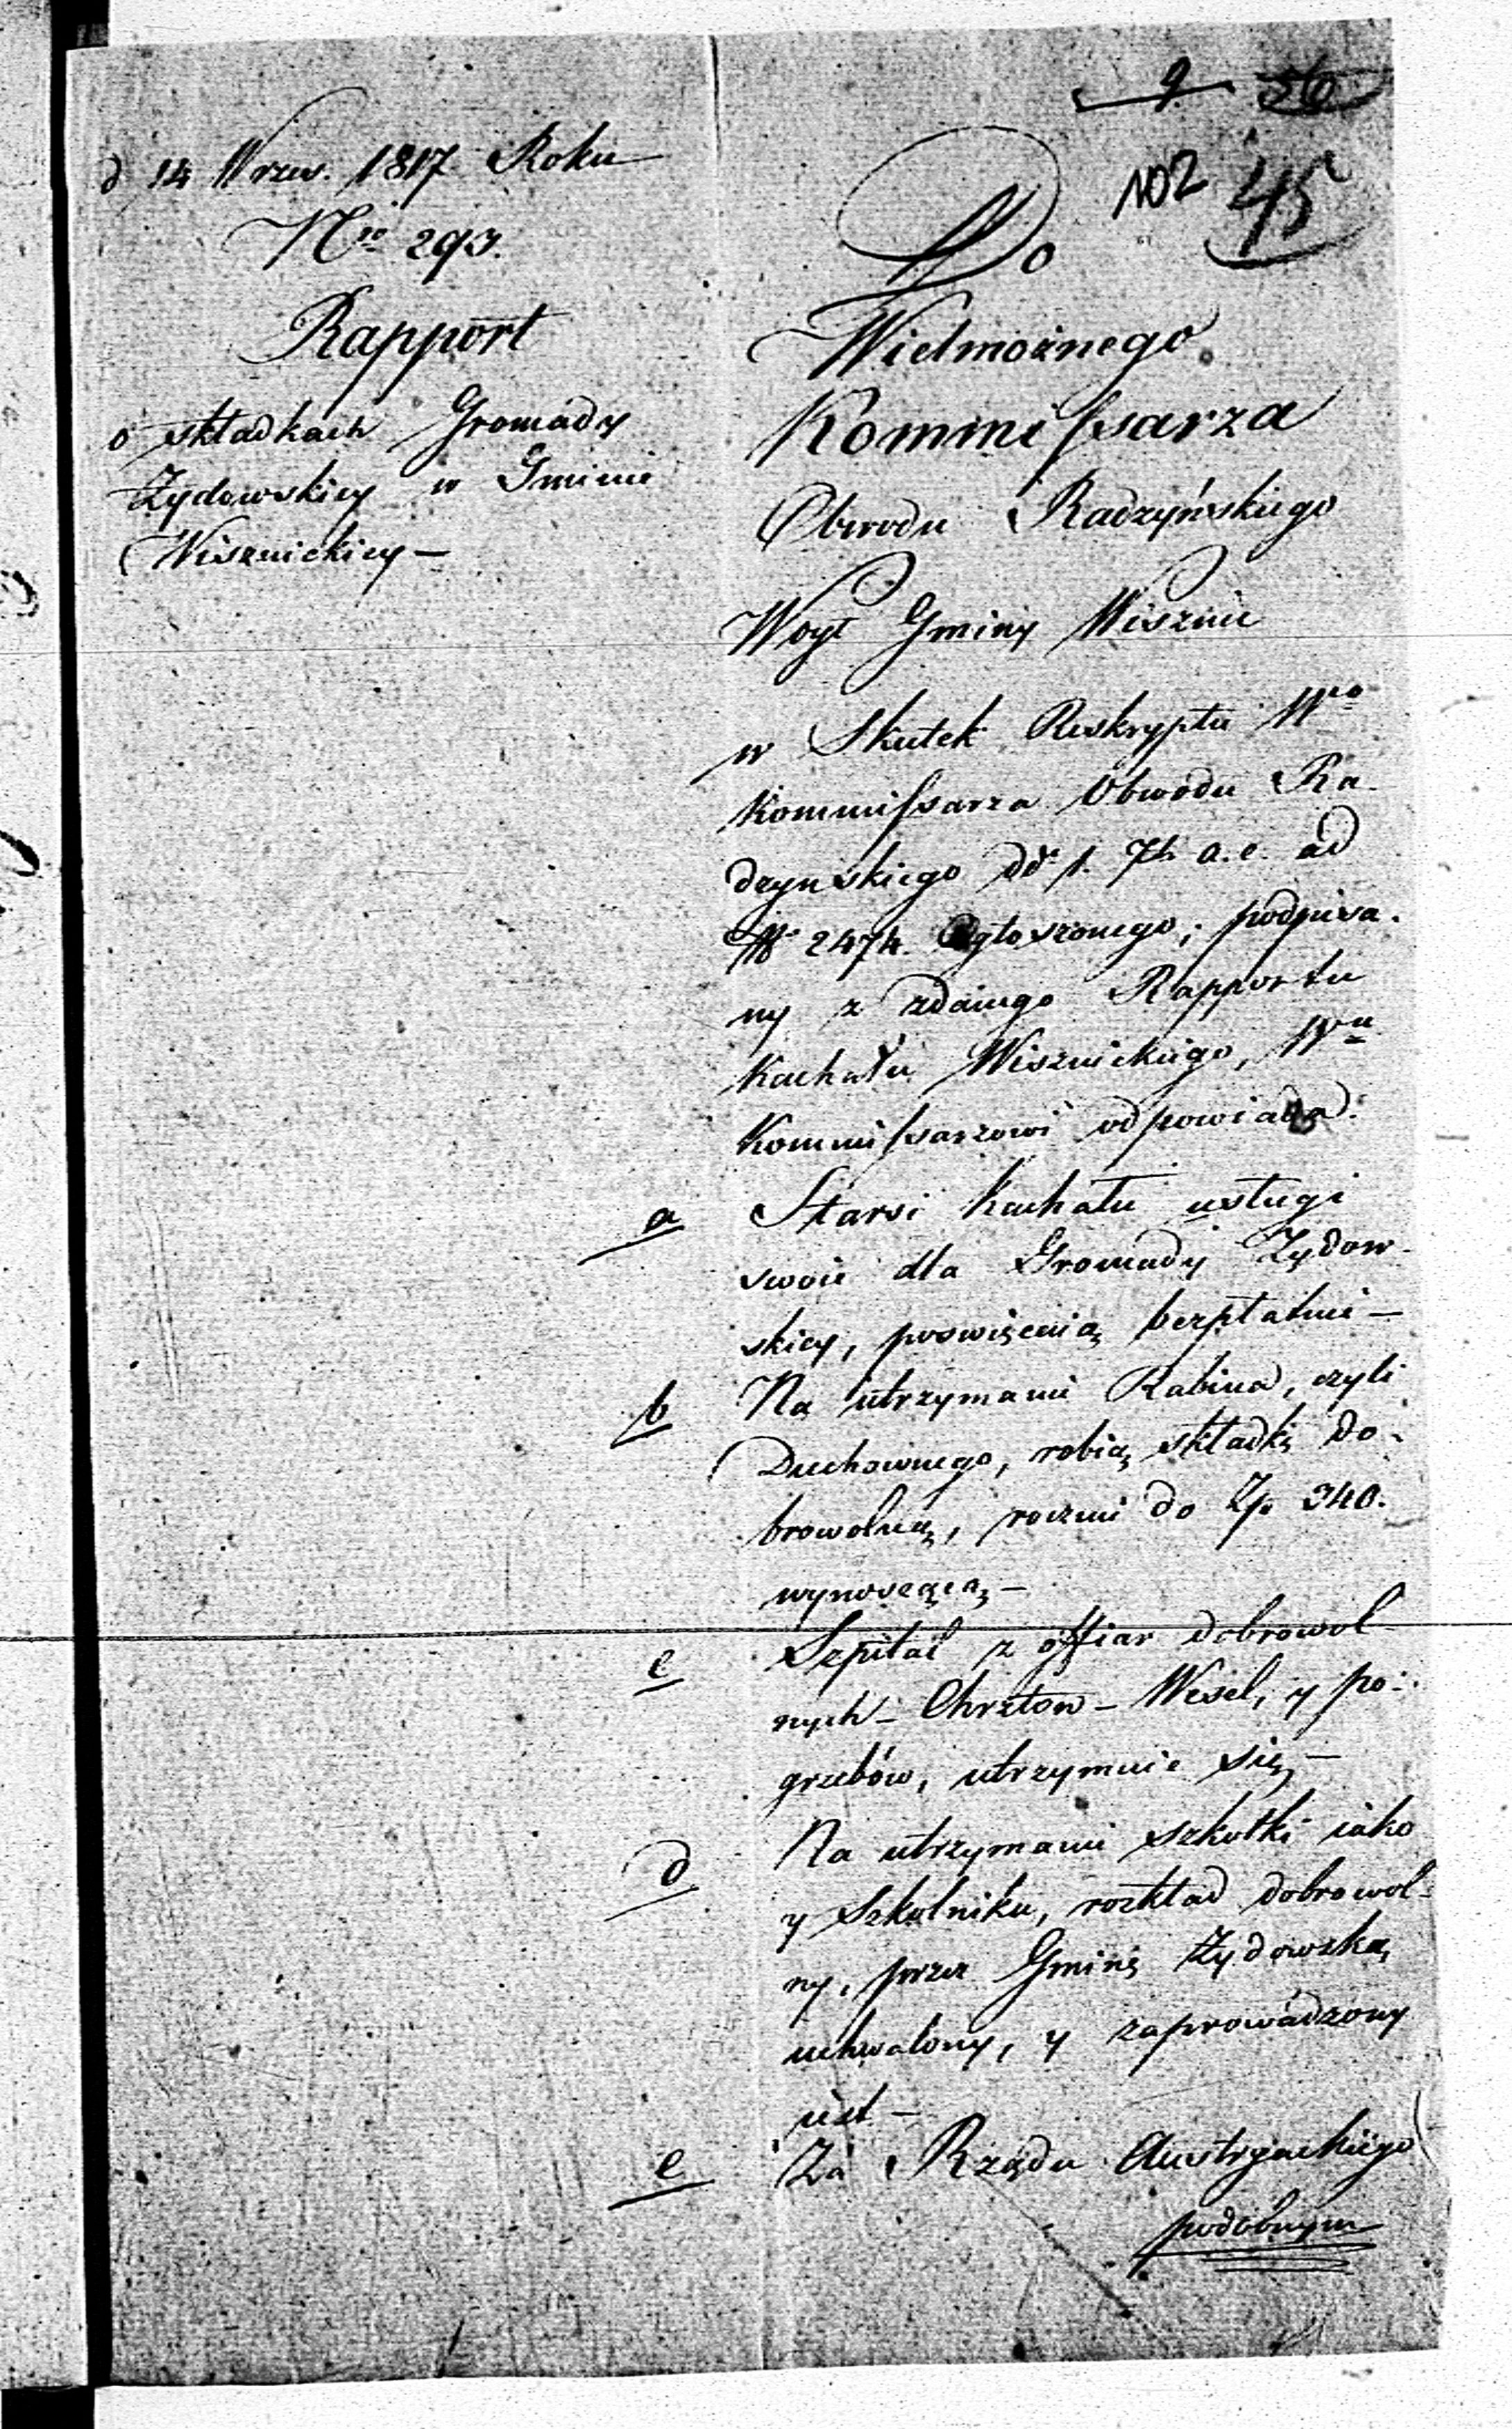 9. 56
102 45
d 14 Wrzes. 1817 Roku
Nro 293.
Rapport
o składkach Gromady
Żydowskiey w Gminie
Wisznickiey —
Do
Wielmożnego
Kommissarza
Obwodu Radzyńskiego
Woyt Gminy Wisznic
w Skutek Reskryptu Wo
Kommissarza Obwodu Ra-
dzynskiego dd 1. 7b. a.c. ad
No 2474. Ogłoszonego, podpisa-
ny z zdanego Rapportu
Kachału Wisznickiego, Wu
Kommissarzowi odpowiada.
a Starsi Kachału usługi
swoie dla Gromady Żydow-
skiey, poswięcaią bezpłatnie —
b Na utrzymanie Rabina, czyli
Duchownego, robią składkę do-
browolną, rocznie do Zp 340.
wynoszącą —
c Szpital z offiar dobrowol-
nych — Chrztow — Wesel, y po-
grzebów, utrzymuie się —
d Na utrzymanie szkołki iako
y Szkolnika, rozkład dobrowol-
ny, przez Gminę Żydowską
uchwalony, y zaprowadzony
iest —
e Za Rządu Austryackiego
podobnym